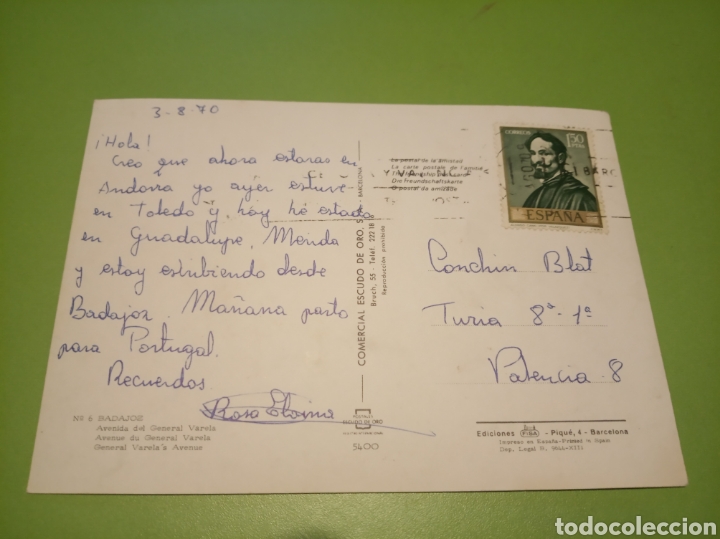 3-8-70
¡Hola!
Creo que ahora estaras en
Andorra yo ayer estuve
en Toledo y hoy hé estado
en Guadalupe, Merida
y estoy eskribiendo desde
Badajoz. Mañana parto
para Portugal.
Recuerdos
Rosa
Nº 6 BADAJOZ
Avenida del General Varela
Avenue du General Varela
General Varela's Avenue
COMERCIAL ESCUDO DE ORO, S. A. - BARCELONA
Bruch, 55 - Telef. 222 18
Reproducción prohibida
POSTALES
ESCUDO DE ORO
5400
La postal de la amistad
La carte postale de l'amitié
Die freundschaftskarte
O postal da amizade
CORREOS
1'50
PTAS
ESPAÑA
Conchin Blat
Turia 8ª-1ª
Valencia 8
Ediciones FISA - Piqué, 4 - Barcelona
Impreso en España-Printed in Spain
todocoleccion